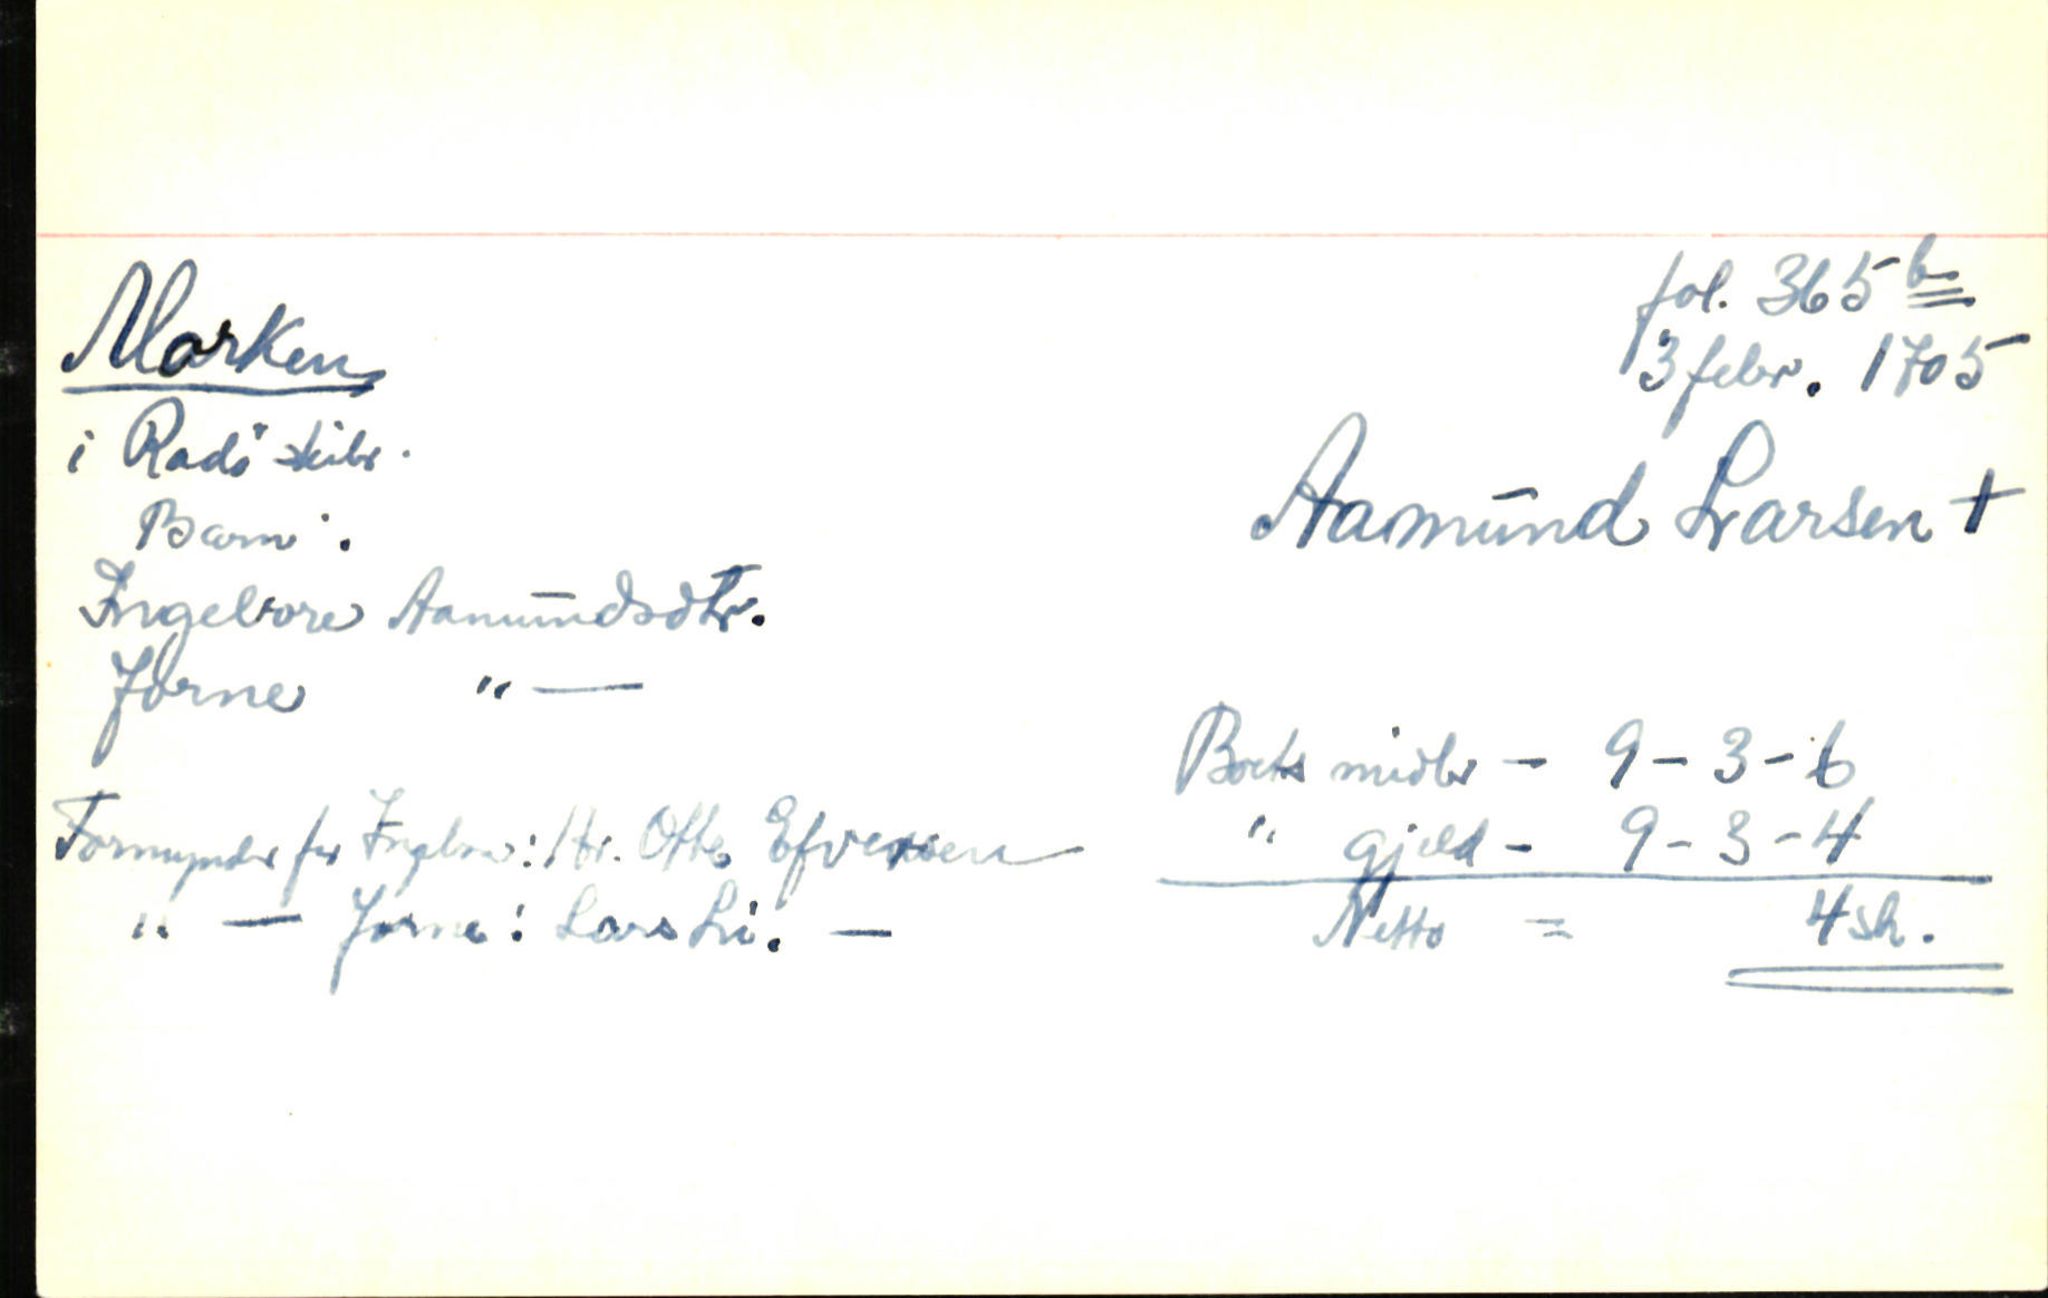 Marken
i Radö skibr.
Barn:
Ingeborre Aamundsdtr.
Jorne " —
Formynder for Ingeborre: Hr. Otto Efversen
" — Jorne: Lars Li. —
fol. 365 b
3 febr. 1705
Aamund Larsen +
Boets midler - 9-3-6
" gjeld - 9-3-4
Netto = 4 sk.